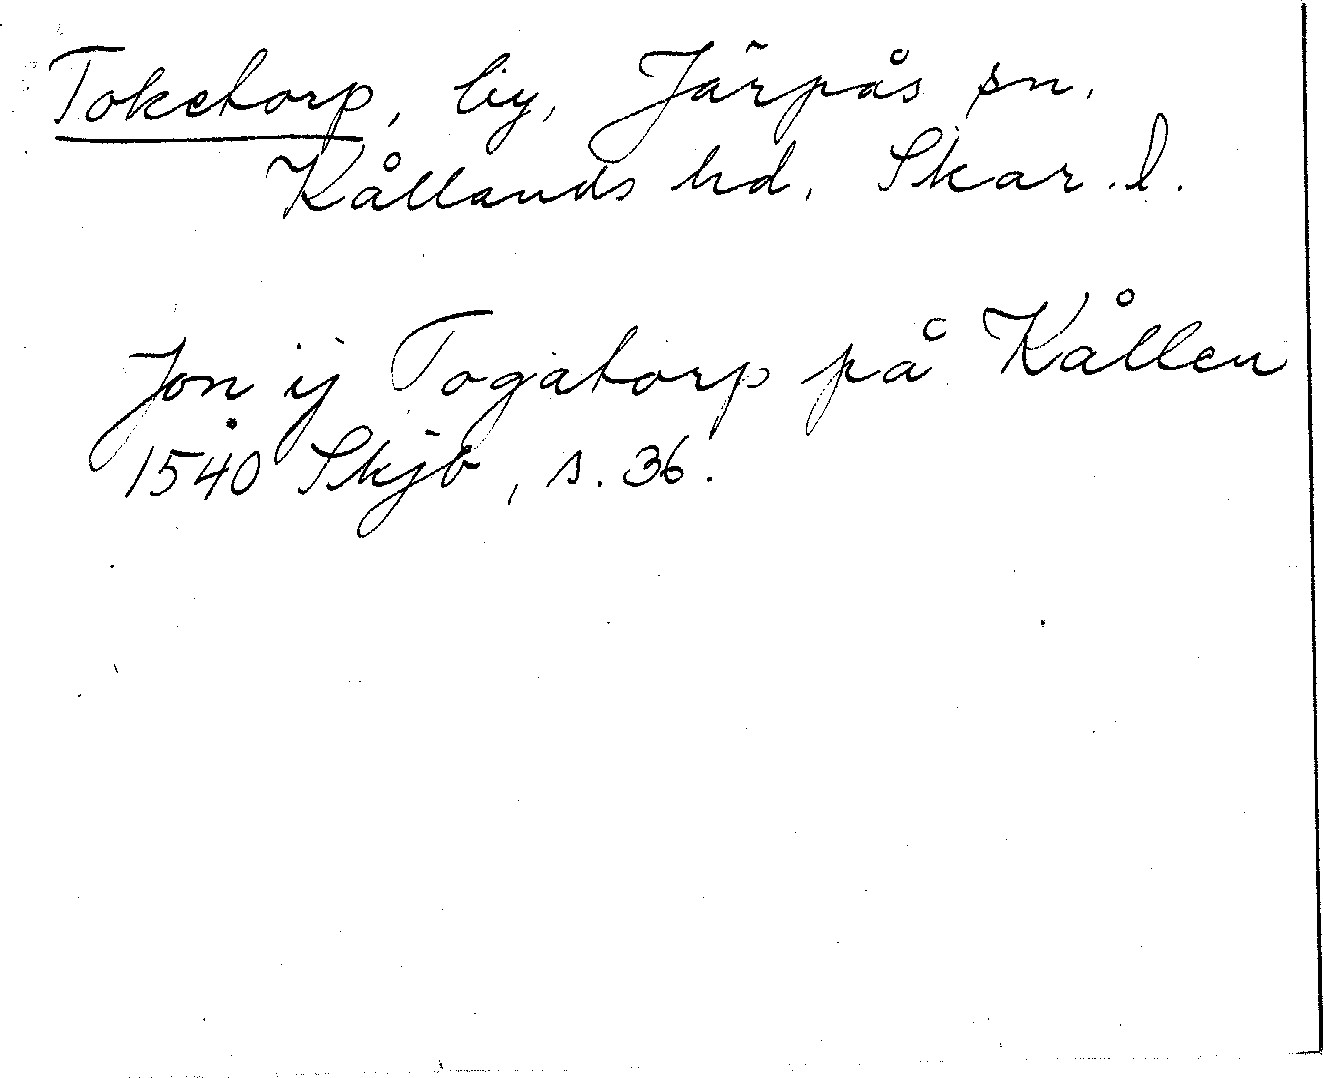 Toketorp, by, Järpås sn,
Kållands hd, Skar. l.
Jon ij Togatorp på Kållen
1540 Skjb, s. 36.